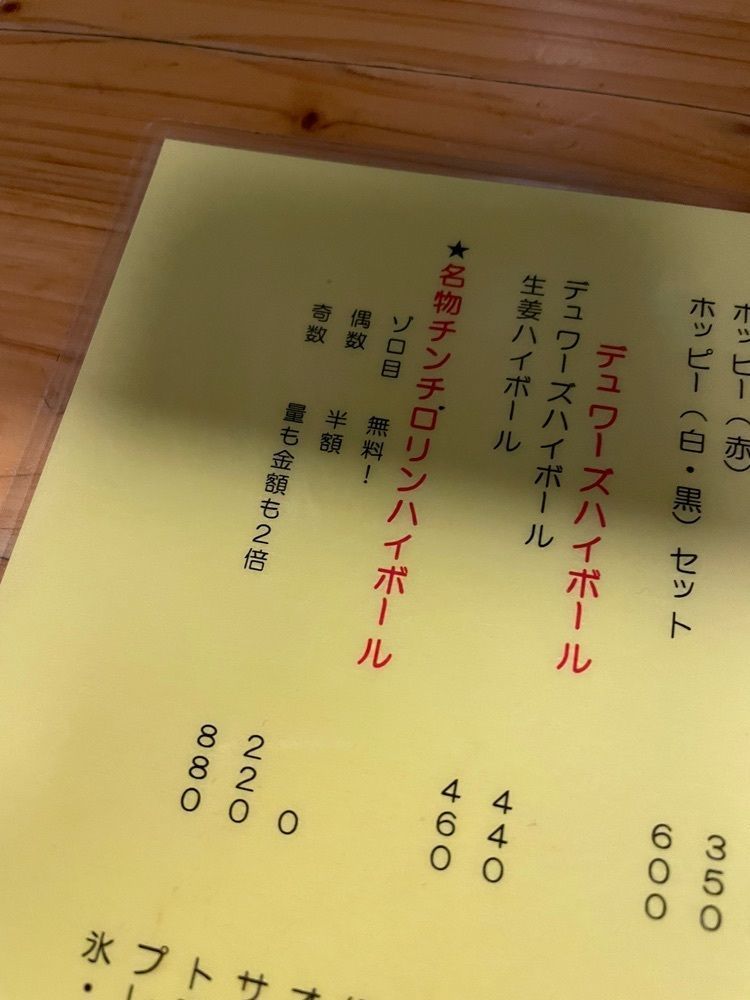 ホッピー（赤） 350
ホッピー（白・黒）セット 600
デュワーズハイボール
デュワーズハイボール 440
生姜ハイボール 460
★名物チンチロリンハイボール
ゾロ目 無料！ 0
偶数 半額 220
奇数 量も金額も2倍 880
オ
サ
ト
プ
氷・